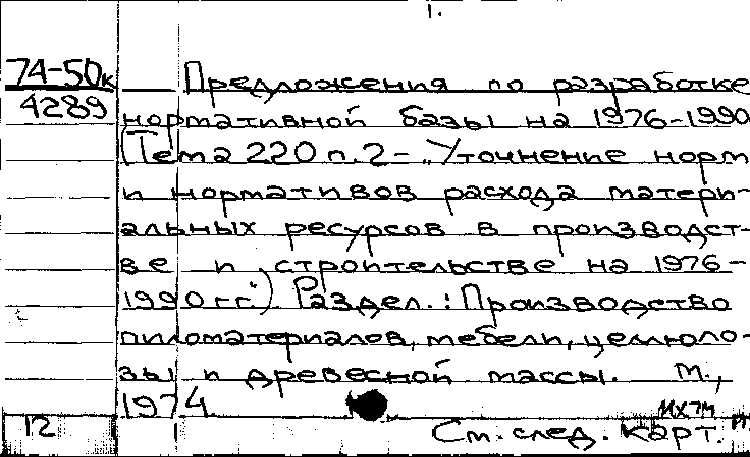 1.
74-50к
4289
Предложения по разработке
нормативной базы на 1976-1990
(Тема 220 п.2 - „Уточнение норм
и нормативов расхода матери-
альных ресурсов в производст-
ве и строительстве на 1976-
1990 гг.") Раздел.: Производство
пиломатериалов, мебели, целлюло-
зы и древесной массы. М.,
1974.
12
См. след. карт.